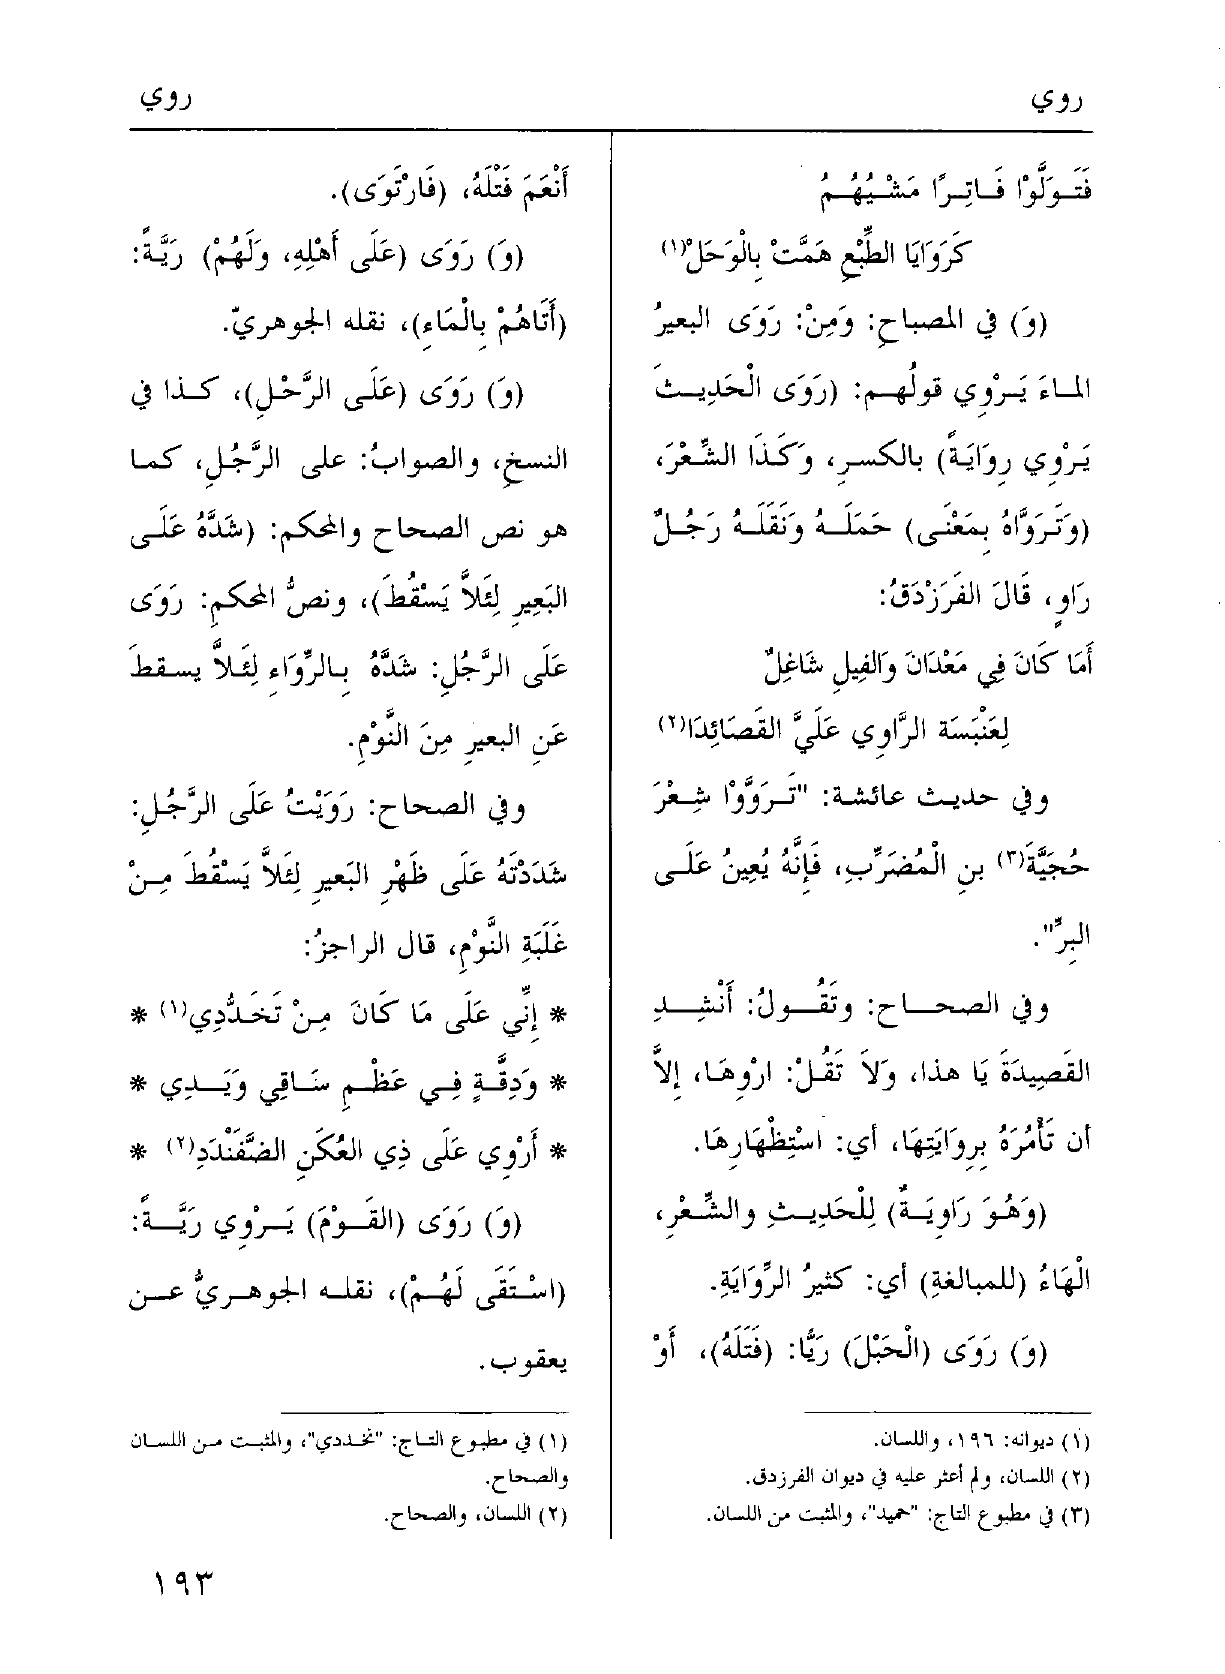 روي
روي
فَتَـوَلَّوْا فَـاتِـرًا مَشْـيُهُـمُ
كَرَوَايَا الطِّبْعِ هَمَّتْ بِالْوَحَلْ(١)
(وَ) في المصباحِ: وَمِنْ: رَوَى البعيرُ
المـاءَ يَـرْوِي قولُهـم: (رَوَى الْحَدِيـثَ
يَرْوِي رِوَايَةً) بالكسرِ، وَكَذَا الشِّعْرَ،
(وَتَرَوَّاهُ بِمَعْنًى) حَمَلَـهُ وَنَقَلَـهُ رَجُـلٌ
رَاوٍ، قَالَ الفَرَزْدَقُ:
أَمَا كَانَ فِي مَعْدَانَ وَالفِيلِ شَاغِلٌ
لِعَنْبَسَةَ الرَّاوِي عَلَيَّ القَصَائِدَا(٢)
وفي حديث عائشة: "تَـرَوَّوْا شِـعْرَ
حُجَيَّةَ(٣) بنِ الْمُضَرِّبِ، فَإِنَّهُ يُعِينُ عَلَـى
البِرِّ".
وفي الصحـاح: وتَقُـولُ: أَنْشِـدِ
القَصِيدَةَ يَا هذا، وَلاَ تَقُـلْ: ارْوِهَـا، إِلاَّ
أن تَأْمُرَهُ بِرِوَايَتِهَا، أي: اسْتِظْهَارِهَا.
(وَهُوَ رَاوِيَـةٌ) لِلْحَدِيـثِ والشِّـعْرِ،
الْهَاءُ (للمبالغةِ) أي: كثيرُ الرِّوَايَةِ.
(وَ) رَوَى (الْحَبْلَ) رَيًّا: (فَتَلَهُ)، أَوْ
(١) ديوانه: ١٩٦، واللسان.
(٢) اللسان، ولم أعثر عليه في ديوان الفرزدق.
(٣) في مطبوع التاج: "حميد"، والمثبت من اللسان.
أَنْعَمَ فَتْلَهُ، (فَارْتَوَى).
(وَ) رَوَى (عَلَى أَهْلِهِ، وَلَهُمْ) رَيَّةً:
(أَتَاهُمْ بِالْمَاءِ)، نقله الجوهريّ.
(وَ) رَوَى (عَلَـى الرَّحْلِ)، كـذا في
النسخِ، والصوابُ: على الرَّجُلِ، كمـا
هو نص الصحاحِ والمحكمِ: (شَدَّهُ عَلَـى
البَعِيرِ لِئَلاَّ يَسْقُطَ)، ونصُّ المحكمِ: رَوَى
عَلَى الرَّجُلِ: شَدَّهُ بِـالرِّوَاءِ لِئَـلاَّ يسـقطَ
عَنِ البعيرِ مِنَ النَّوْمِ.
وفي الصحاح: رَوَيْتُ عَلَى الرَّجُلِ:
شَدَدْتَهُ عَلَى ظَهْرِ البَعيرِ لِئَلاَّ يَسْقُطَ مِـنْ
غَلَبَةِ النَّوْمِ، قال الراجزُ:
* إِنِّي عَلَى مَا كَانَ مِنْ تَخَدُّدِي(١) *
* وَدِقَّـةٍ فِـي عَظْـمِ سَـاقِي وَيَـدِي *
* أَرْوِي عَلَى ذِي العُكَنِ الضَّفَنْدَدِ(٢) *
(وَ) رَوَى (القَـوْمَ) يَـرْوِي رَيَّـةً:
(اسْـتَقَى لَهُـمْ)، نقلـه الجوهـريُّ عـن
يعقوب.
(١) في مطبوع التاج: "تخددي"، والمثبت من اللسان
والصحاح.
(٢) اللسان، والصحاح.
١٩٣